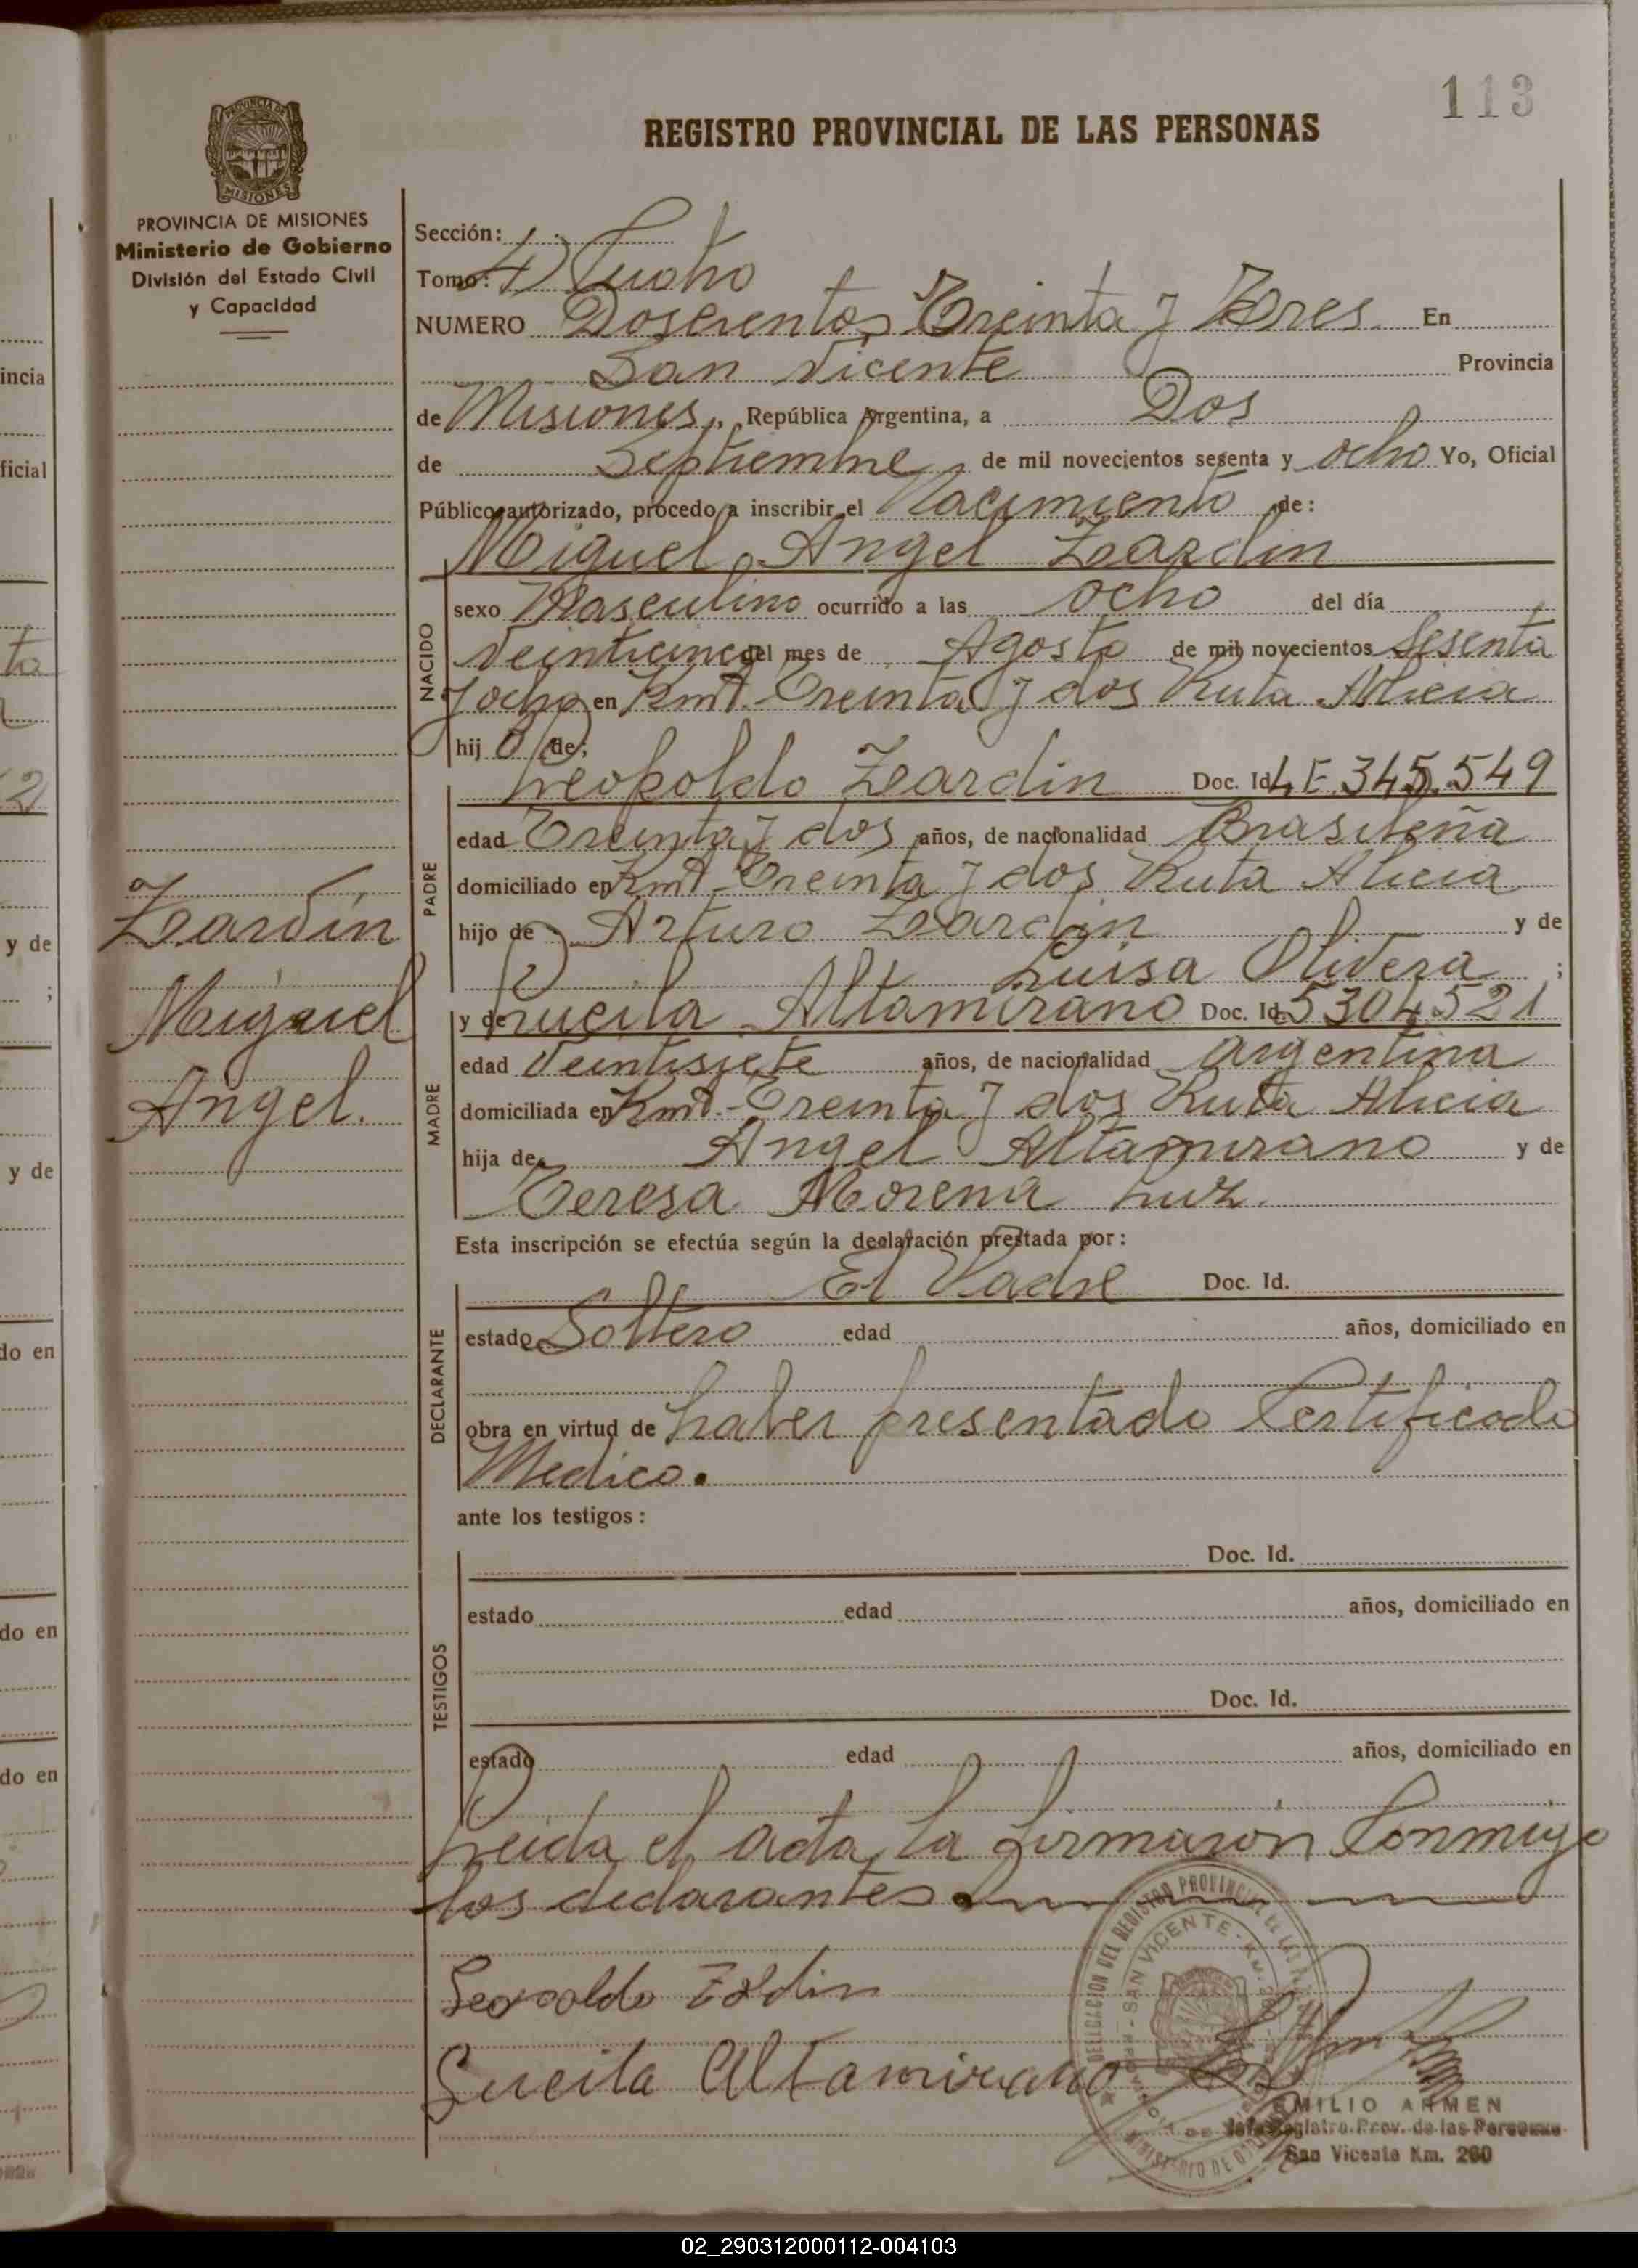 113
REGISTRO PROVINCIAL DE LAS PERSONAS
PROVINCIA DE MISIONES
MISIONES
PROVINCIA DE MISIONES
Ministerio de Gobierno
División del Estado Civil
y Capacidad
Sección:
Tomo: 4) Cuatro
NUMERO Doscientos Treinta y Tres En
San Vicente Provincia
de Misiones, República Argentina, a Dos
de Septiembre de mil novecientos sesenta y ocho Yo, Oficial
Público autorizado, procedo a inscribir el Nacimiento de:
Miguel Angel Zardin
NACIDO
sexo Masculino ocurrido a las ocho del día
Veinticinco del mes de Agosto de mil novecientos Sesenta
y ocho en Kmt. Treinta y dos Ruta Alicia
hij o de;
Leopoldo Zeardin Doc. Id. L E 345.549
PADRE
edad Treinta y dos años, de nacionalidad Brasileña
domiciliado en Kmt. Treinta y dos Ruta Alicia
hijo de Arturo Zardin y de
Luisa Olivera ;
y de Lucila Altamirano Doc. Id. 5304521
MADRE
edad Veintisiete años, de nacionalidad Argentina
domiciliada en Kmt. Treinta y dos Ruta Alicia
hija de Angel Altamirano y de
Teresa Morena Luz.
Zardín
Miguel
Angel.
Esta inscripción se efectúa según la declaración prestada por:
El Padre Doc. Id.
DECLARANTE
estado Soltero edad años, domiciliado en
obra en virtud de haber presentado Certificado
Medico.
ante los testigos:
Doc. Id.
TESTIGOS
estado edad años, domiciliado en
Doc. Id.
estado edad años, domiciliado en
Leida el acta, la firmaron Conmigo
los declarantes.
Leopoldo Zardin
Lucila Altamirano
DELEGACION DEL REGISTRO PROVINCIAL DE LAS
SAN VICENTE - Km.
MINISTERIO DE
EMILIO ARMEN
Jefe Registro Prov. de las Personas
San Vicente Km. 260
incia
ficial
ta
2
y de
;
y de
do en
do en
do en
02_290312000112-004103